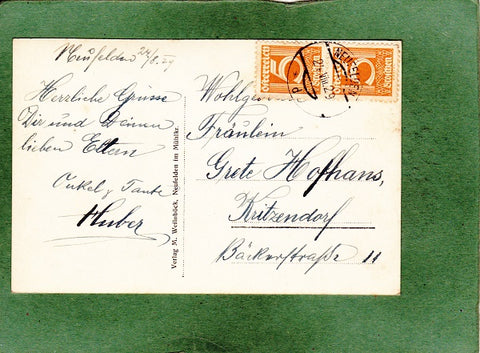 Neufelden 24/8.29
Herzliche Grüsse
Dir und Deinen
lieben Eltern
Onkel u Tante
Huber
Verlag M. Weilnböck, Neufelden im Mühlkr.
Fräulein
Grete Hofhans,
Kritzendorf
Bäckerstraße 11
5 Groschen
5 Groschen
Österreich
NEUFELDEN